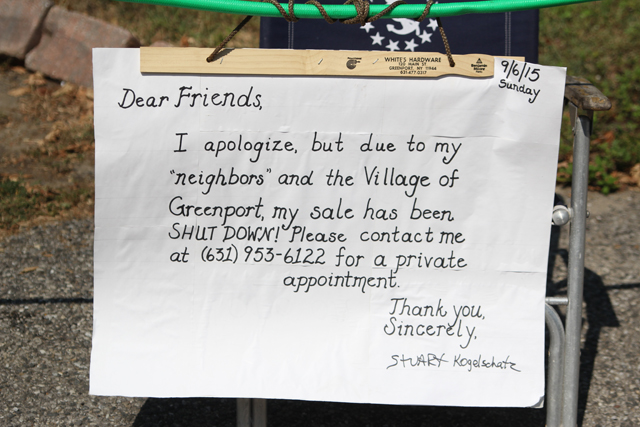 WHITE'S HARDWARE
120 MAIN ST.
GREENPORT, NY 11944
631-477-0317
9/6/15
Sunday
Dear Friends,
I apologize, but due to my
"neighbors" and the Village of
Greenport, my sale has been
SHUT DOWN! Please contact me
at (631) 953-6122 for a private
appointment.
Thank you,
Sincerely,
STUART Kogelschatz